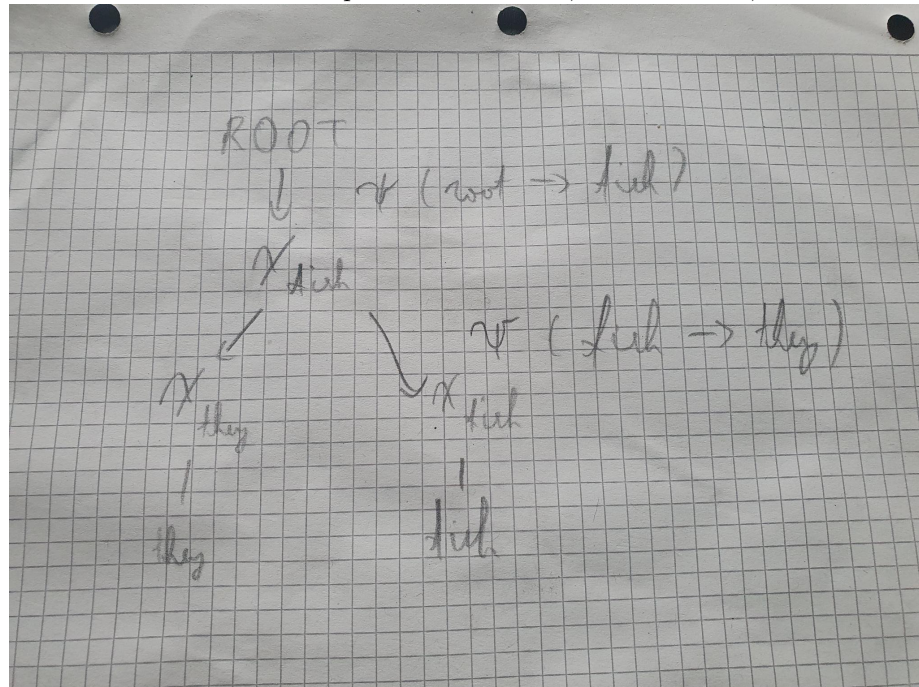 ROOT
ψ (root → fish)
X fish
ψ (fish → they)
X they
X fish
they
fish